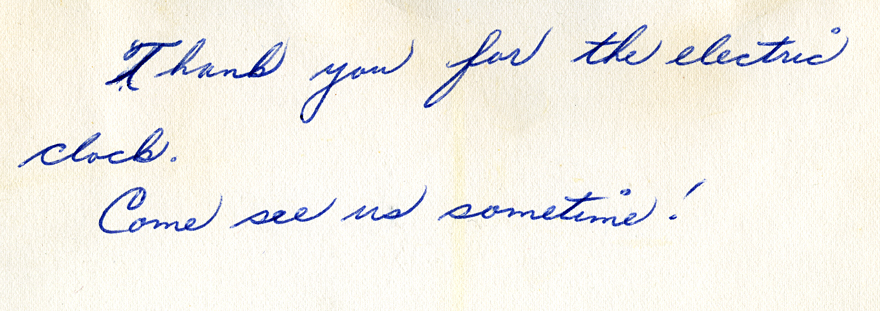 Thank you for the electric
clock.
Come see us sometime!